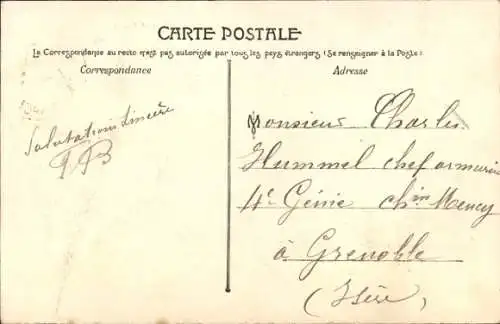 CARTE POSTALE
La Correspondance au recto n'est pas autorisée par tous les pays étrangers (Se renseigner à la Poste)
Correspondance
Adresse
Salutation sincère
Monsieur Charles
Hummel chef armurier
4e Génie chin Mency
à Grenoble
(Isère)